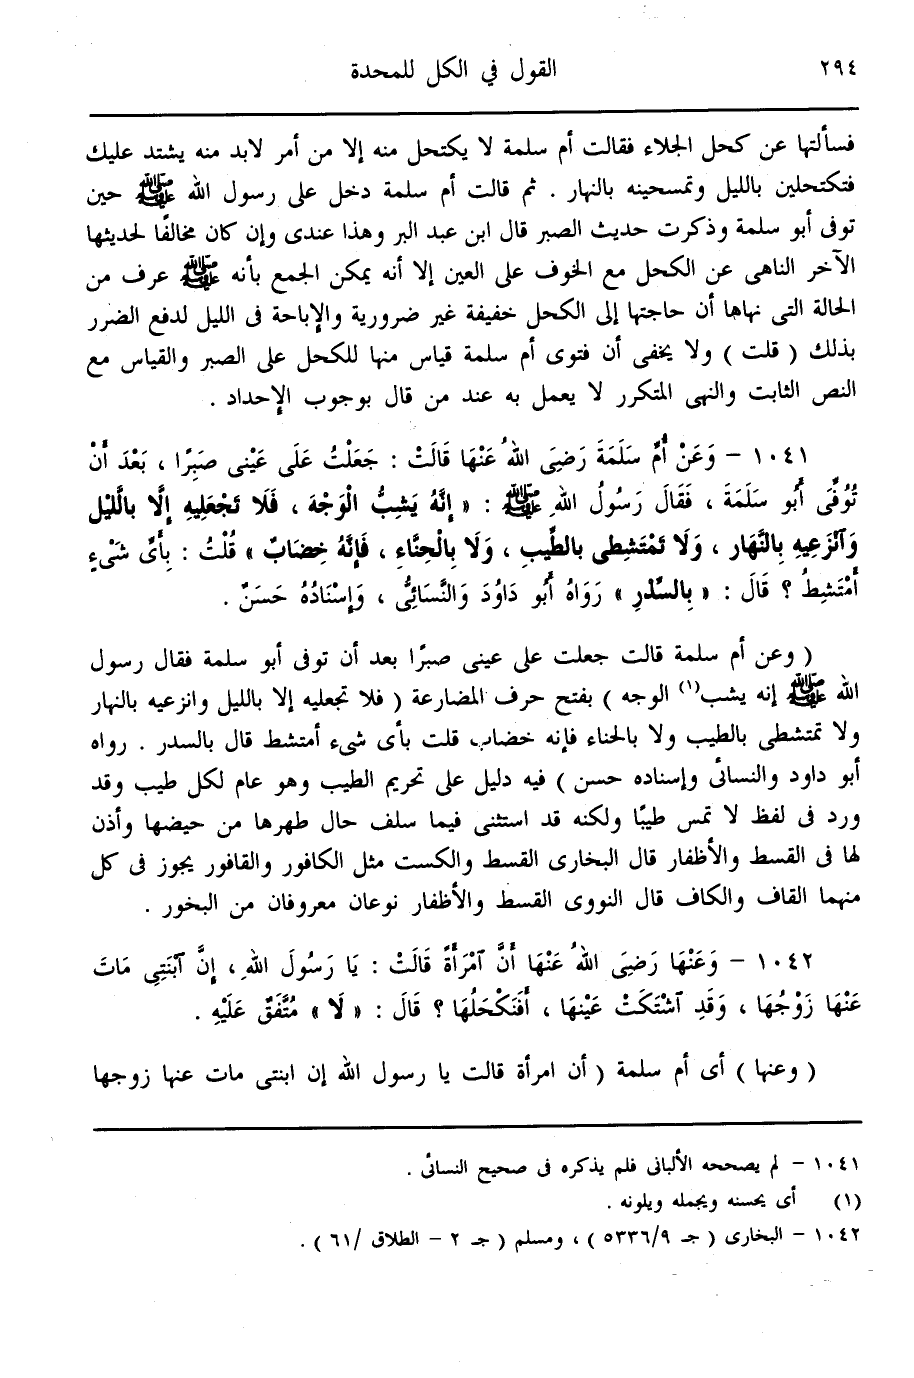 ٢٩٤
القول في الكل للمحدة
فسألتها عن كحل الجلاء فقالت أم سلمة لا يكتحل منه إلا من أمر لابد منه يشتد عليك
فتكتحلين بالليل وتمسحينه بالنهار . ثم قالت أم سلمة دخل على رسول الله ﷺ حين
توفى أبو سلمة وذكرت حديث الصبر قال ابن عبد البر وهذا عندى وإن كان مخالفًا لحديثها
الآخر الناهى عن الكحل مع الخوف على العين إلا أنه يمكن الجمع بأنه ﷺ عرف من
الحالة التى نهاها أن حاجتها إلى الكحل خفيفة غير ضرورية والإباحة فى الليل لدفع الضرر
بذلك ( قلت ) ولا يخفى أن فتوى أم سلمة قياس منها للكحل على الصبر والقياس مع
النص الثابت والنهى المتكرر لا يعمل به عند من قال بوجوب الإحداد .
١٠٤١ – وَعَنْ أُمِّ سَلَمَةَ رَضِىَ اللهُ عَنْهَا قَالَتْ : جَعَلْتُ عَلَى عَيْنِى صَبِرًا ، بَعْدَ أَنْ
تُوُفِّىَ أَبُو سَلَمَةَ ، فَقَالَ رَسُولُ اللهِ ﷺ : « إِنَّهُ يَشِبُّ الْوَجْهَ ، فَلَا تَجْعَلِيهِ إِلَّا بِالَّليْلِ
وَآنْزَعِيهِ بِالنَّهَارِ ، وَلَا تَمْتَشِطِى بِالطِّيبِ ، وَلَا بِالْحِنَّاءِ ، فَإِنَّهُ خِضَابٌ » قُلْتُ : بِأَىِّ شَىْءٍ
أَمْتَشِطُ ؟ قَالَ : « بِالسِّدْرِ » رَوَاهُ أَبُو دَاوُدَ وَالنَّسَائِىُّ ، وَإِسْنَادُهُ حَسَنٌ .
( وعن أم سلمة قالت جعلت على عينى صبرًا بعد أن توفى أبو سلمة فقال رسول
الله ﷺ إنه يشب(١) الوجه ) بفتح حرف المضارعة ( فلا تجعليه إلا بالليل وانزعيه بالنهار
ولا تمتشطى بالطيب ولا بالحناء فإنه خضاب قلت بأى شىء أمتشط قال بالسدر . رواه
أبو داود والنسائى وإسناده حسن ) فيه دليل على تحريم الطيب وهو عام لكل طيب وقد
ورد فى لفظ لا تمس طيبًا ولكنه قد استثنى فيما سلف حال طهرها من حيضها وأذن
لها فى القسط والأظفار قال البخارى القسط والكست مثل الكافور والقافور يجوز فى كل
منهما القاف والكاف قال النووى القسط والأظفار نوعان معروفان من البخور .
١٠٤٢ – وَعَنْهَا رَضِىَ اللهُ عَنْهَا أَنَّ آمْرَأَةً قَالَتْ : يَا رَسُولَ اللهِ ، إِنَّ آبْنَتِى مَاتَ
عَنْهَا زَوْجُهَا ، وَقَدِ آشْتَكَتْ عَيْنهَا ، أَفَنَكْحَلُهَا ؟ قَالَ : « لَا » مُتَّفَقٌ عَلَيْهِ .
( وعنها ) أى أم سلمة ( أن امرأة قالت يا رسول الله إن ابنتى مات عنها زوجها
١٠٤١ – لم يصححه الألبانى فلم يذكره فى صحيح النسائى .
(١) أى يحسنه ويجمله ويلونه .
١٠٤٢ – البخارى ( جـ ٥٣٣٦/٩ ) ، ومسلم ( جـ ٢ – الطلاق /٦١ ) .